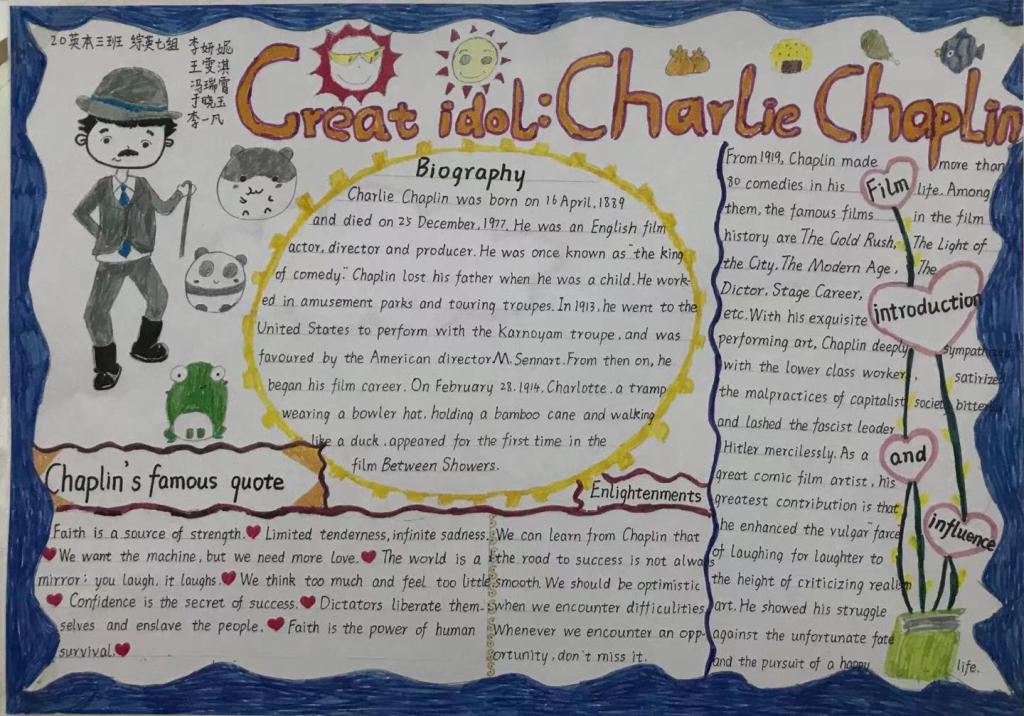 20英本三班 综英七组 李妍妮
王雯淇
冯瑞霄
于晓玉
李一凡
Great idol: Charlie Chaplin
Biography
Charlie Chaplin was born on 16 April, 1889
and died on 25 December, 1977. He was an English film
actor, director and producer. He was once known as "the king
of comedy." Chaplin lost his father when he was a child. He work-
ed in amusement parks and touring troupes. In 1913, he went to the
United States to perform with the Karnoyam troupe, and was
favoured by the American director M. Sennart. From then on, he
began his film career. On February 28, 1914, Charlotte, a tramp
wearing a bowler hat, holding a bamboo cane and walking
like a duck, appeared for the first time in the
film Between Showers.
Chaplin's famous quote
Faith is a source of strength. Limited tenderness, infinite sadness.
We want the machine, but we need more love. The world is a
mirror: you laugh, it laughs. We think too much and feel too little.
Confidence is the secret of success. Dictators liberate them-
selves and enslave the people. Faith is the power of human
survival.
Enlightenments
We can learn from Chaplin that
the road to success is not always
smooth. We should be optimistic
when we encounter difficulties
Whenever we encounter an opp-
ortunity, don't miss it.
Film
introduction
and
influence
From 1919, Chaplin made more than
80 comedies in his life. Among
them, the famous films in the film
history are The Gold Rush, The Light of
the City, The Modern Age, The
Dictor, Stage Career,
etc. With his exquisite
performing art, Chaplin deeply sympathizes
with the lower class worker, satirizes
the malpractices of capitalist society bitterly
and lashed the fascist leader
Hitler mercilessly. As a
great comic film artist, his
greatest contribution is that
he enhanced the vulgar "farce"
of laughing for laughter to
the height of criticizing realism
art. He showed his struggle
against the unfortunate fate
and the pursuit of a happy life.